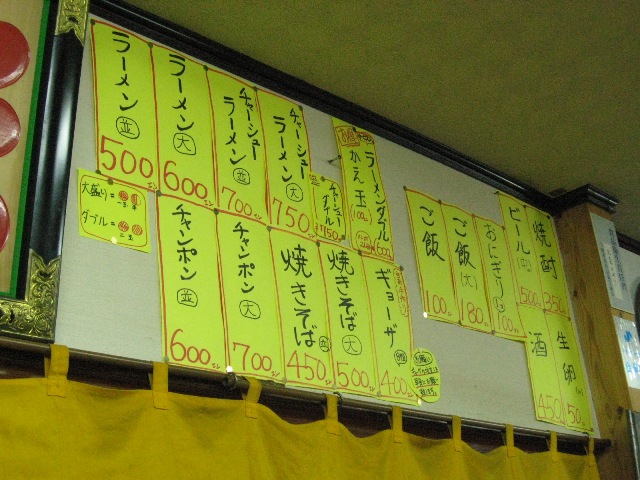 ラーメン 並 500
ラーメン 大 600
チャーシューラーメン 並 700
チャーシューラーメン 大 750
ラーメンダブル 600
かえ玉 100
チャーシューダブル 750
大盛り=
ダブル=
チャンポン 並 600
チャンポン 大 700
焼きそば 並 450
焼きそば 大 500
ギョーザ 400
ご飯 100
ご飯(大) 180
おにぎり 100
ビール 500
焼酎 350
酒 450
生卵 50